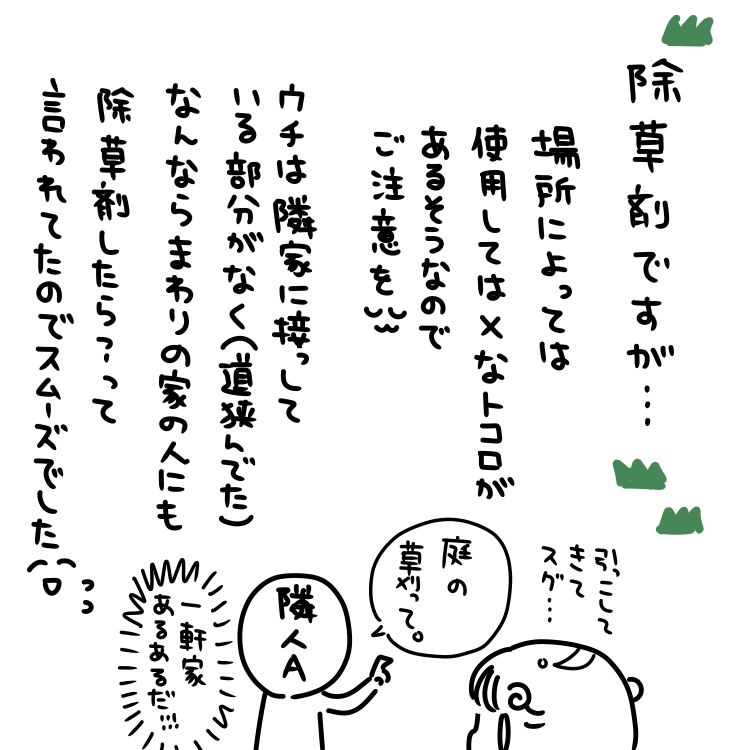 除草剤ですが…
場所によっては
使用しては×なトコロが
あるそうなので
ご注意を
ウチは隣家に接して
いる部分がなく(道挟んでた)
なんならまわりの家の人にも
除草剤したら?って
言われてたのでスムーズでした
引っこして
きて
スグ…
庭の
草刈って。
隣人A
一軒家
あるあるだ!!!